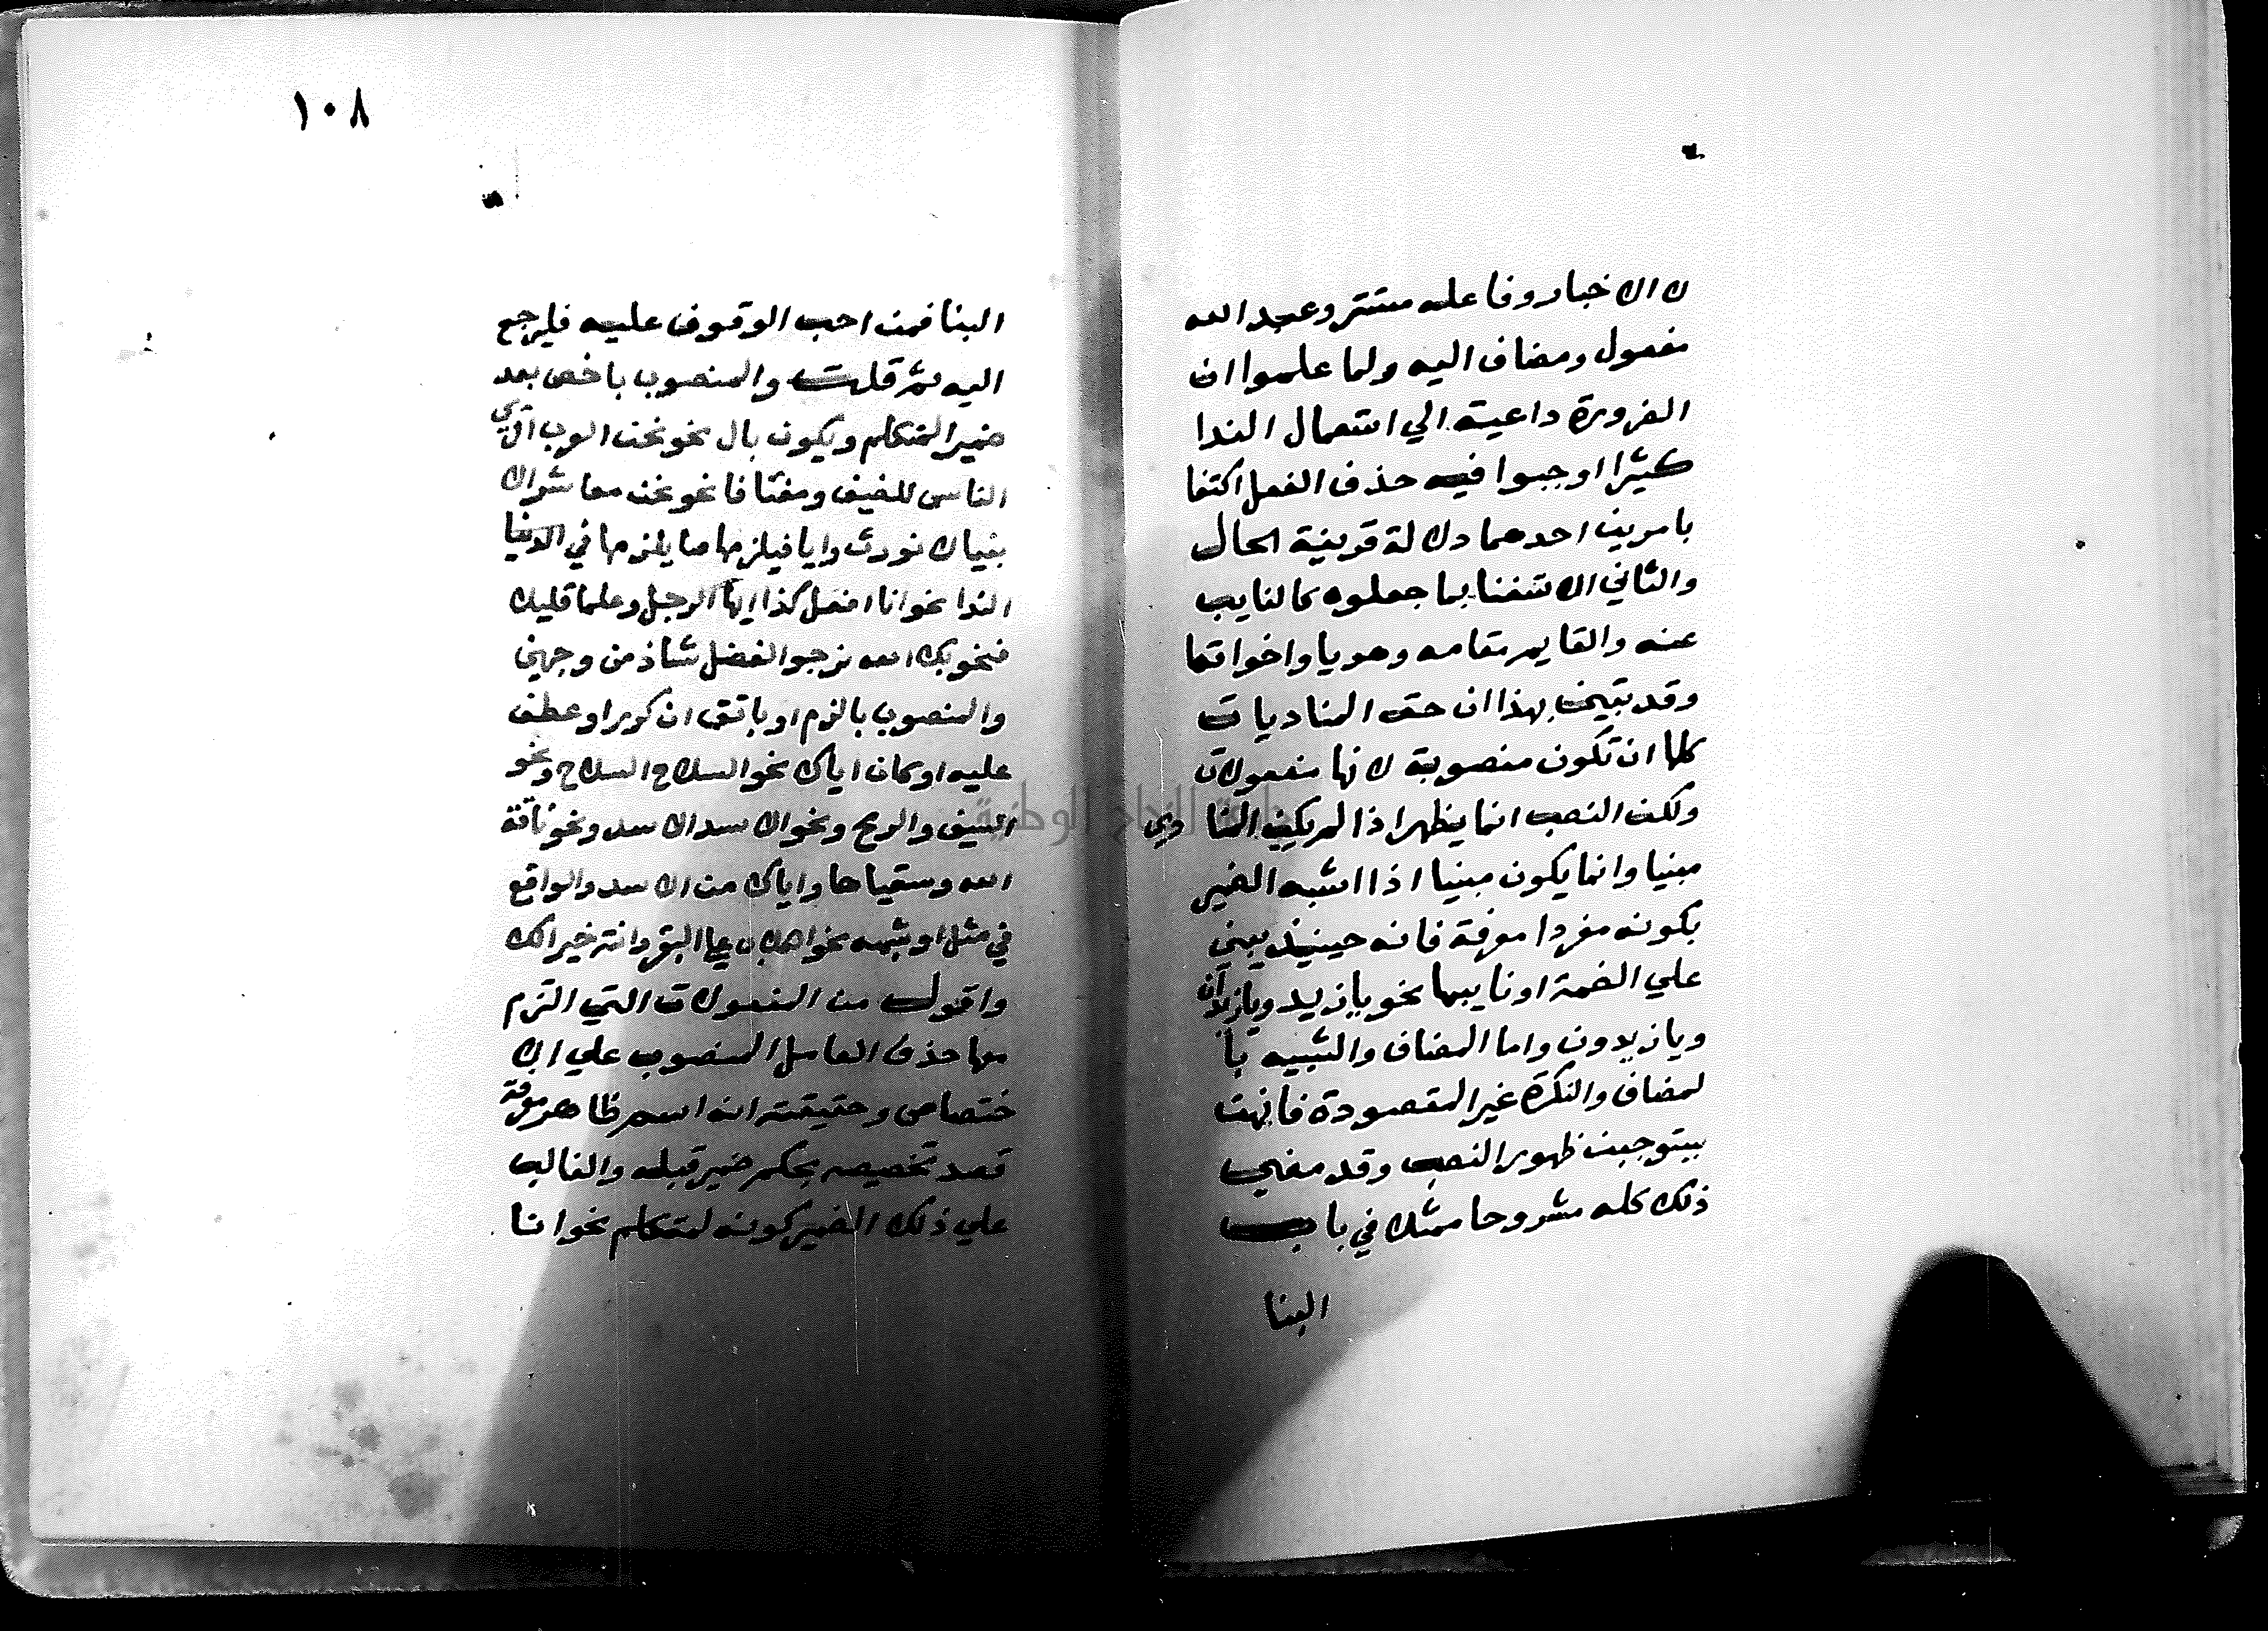 لا الاخبار وفاعله مستتر وعبد الله
مفعول ومضاف اليه ولما علموا ان
الضرورة داعية الي استعمال الندا
كثيرا اوجبوا فيه حذف الفعل اكتفا
بامرين احدهما دلالة قرينة الحال
والثاني الاستغنا بما جعلوه كالنايب
عنه والقايم مقامه وهو يا واخواتها
وقد تبين بهذا ان حق المناديات
كلها ان تكون منصوبة لانها مفعولات
ولكن النصب انما يظهر اذا لم يكن المنادي
مبنيا وانما يكون مبنيا اذا اشبه الضمير
بكونه مفردا معرفة فانه حينيذ يبني
علي الضمة او نايبها نحو يا زيد ويا زيدان
ويا زيدون واما المضاف والشبيه با
لمضاف والنكرة غير المقصودة فانهن
يستوجبن ظهور النصب وقد مضي
ذلك كله مشروحا ممثلا في باب
البنا
١٠٨
البنا فمن احب الوقوف عليه فليرجع
اليه ثم قلت والمنصوب باخص بعد
ضمير المتكلم ويكون بال نحو نحن العرب اقري
الناس للضيف ومضافا نحو نحن معاشر الا
نبيا لا نورث وايا فيلزمها ما يلزمها في
الندا نحو انا افعل كذا ايها الرجل وعلما قليلا
فنحو بك الله نرجو الفضل شاذ من وجهين
والمنصوب بالزم او باتق ان كرر او عطف
عليه او كان اياك نحو السلاح السلاح ونحو
السيف والرمح ونحو الاسد الاسد ونحو ناقة
الله وسقياها واياك من الاسد والواقع
في مثل او شبهه نحو الكلاب علي البقر وانته خيرا لك
واقول من المفعولات التي التزم
معها حذف العامل المنصوب علي الا
ختصاص وحقيقته انه اسم ظاهر معرفة
قصد تخصيصه بحكم ضمير قبله والغالب
علي ذلك الضمير كونه لمتكلم نحو انا